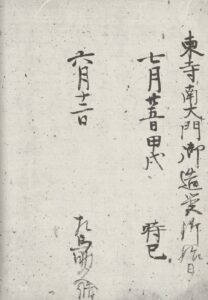 東寺南大門御造営御始日
七月廿五日甲戌　時巳
六月十二日